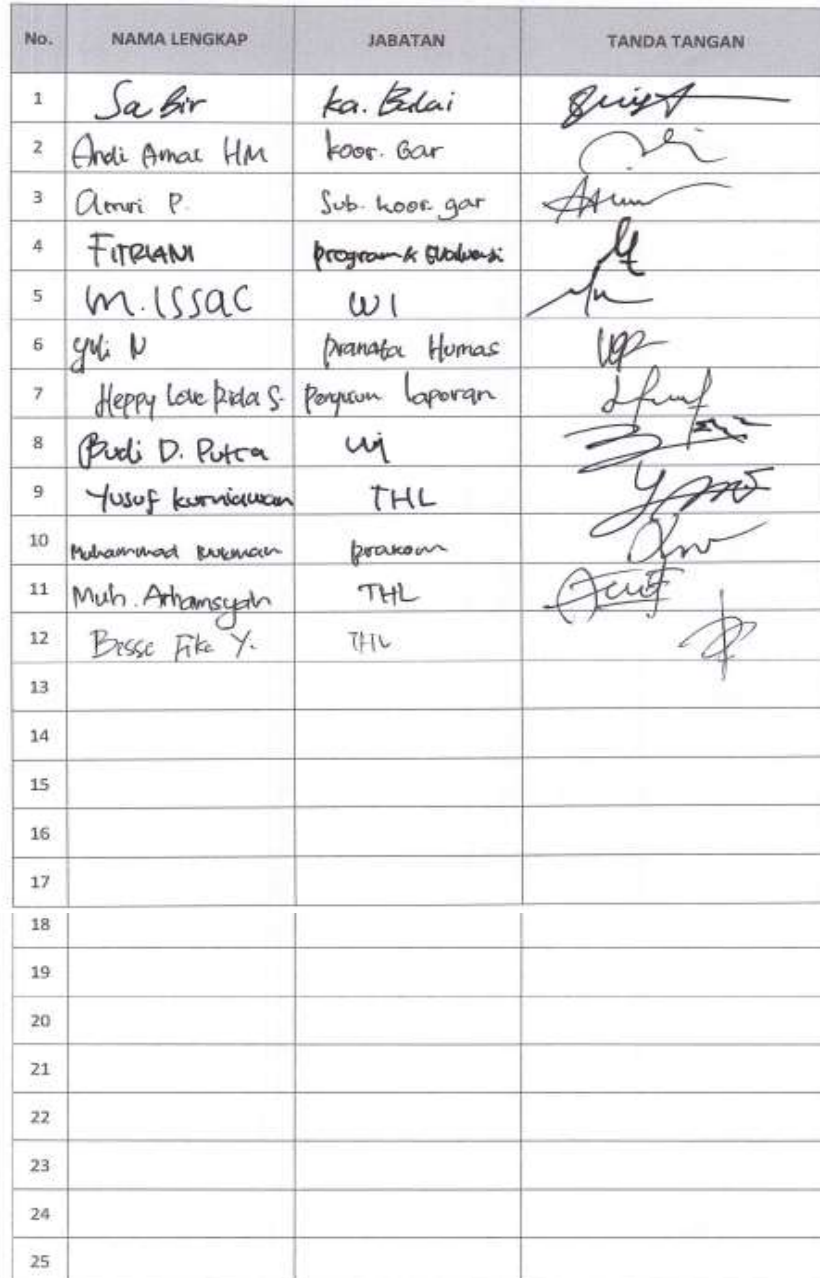 No. NAMA LENGKAP JABATAN TANDA TANGAN
1 Sabir ka. Balai
2 Andi Amal HM koor. Gar
3 Amri P. Sub. koor. gar
4 FITRIANI program & Evaluasi
5 M. ISSAC WI
6 yuli N pranata Humas
7 Heppy Love Rida S. laporan
8 Budi D. Putra WI
9 Yusuf kurniawan THL
10 Muhammad prakom
11 Muh. Arhamsyah THL
12 Besse Fike Y. THL
13
14
15
16
17
18
19
20
21
22
23
24
25